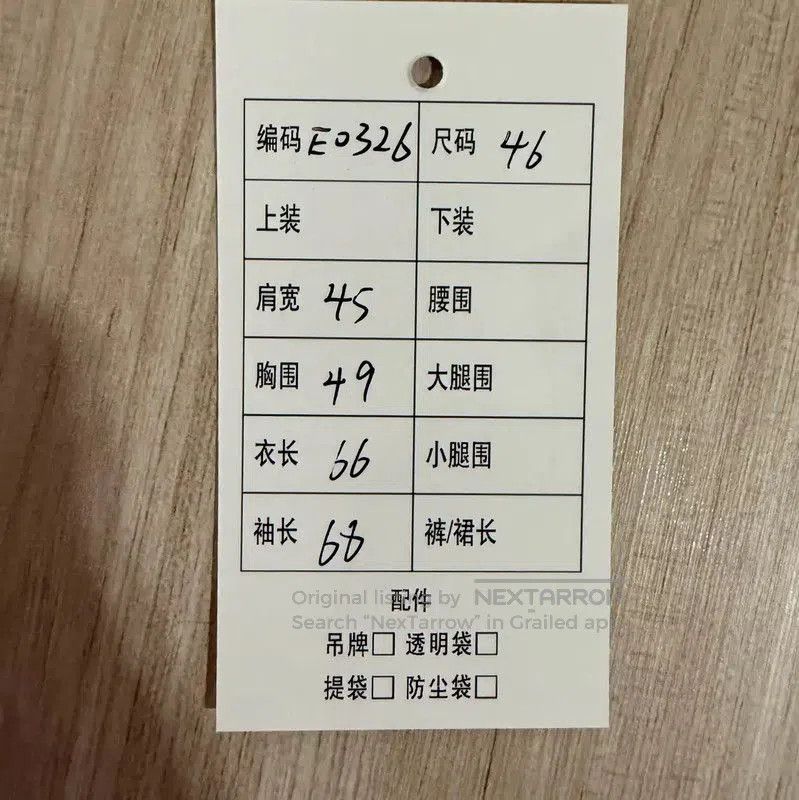 编码 E0326 尺码 46
上装 下装
肩宽 45 腰围
胸围 49 大腿围
衣长 66 小腿围
袖长 68 裤/裙长
配件
Original listing by NEXTARROW
Search "NexTarrow" in Grailed app
吊牌□ 透明袋□
提袋□ 防尘袋□